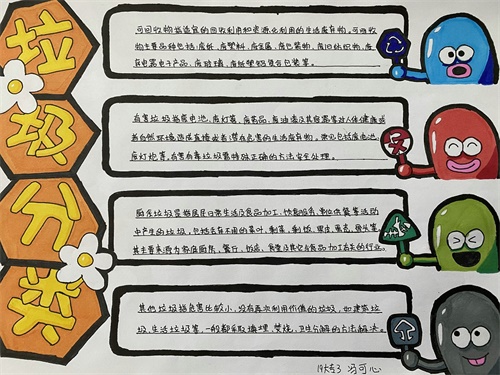 垃
圾
分
类
可回收物指适宜的回收利用和资源化利用的生活废弃物。可回收
物主要品种包括:废纸,废塑料,废金属,废包装物,废旧纺织物,废
弃电器电子产品,废玻璃,废纸塑铝复合包装等。
有害垃圾指废电池,废灯管,废药品,废油漆及其容器等对人体健康或
者自然环境造成直接或者潜在危害的生活废弃物。常见包括废电池,
废灯炮等,有害有毒垃圾需特殊正确的方法安全处理。
厨余垃圾是指居民日常生活及食品加工、饮食服务、单位供餐等活动
中产生的垃圾,包括丢弃不用的菜叶,剩菜,剩饭,果皮,蛋壳,骨头等,
其主要来源为家庭厨房,餐厅,饭店,食堂及其它与食品加工有关的行业。
其他垃圾指危害比较小,没有再次利用价值的垃圾,如建筑垃
圾,生活垃圾等,一般都采取填埋,焚烧,卫生分解的方法解决。
冯可心